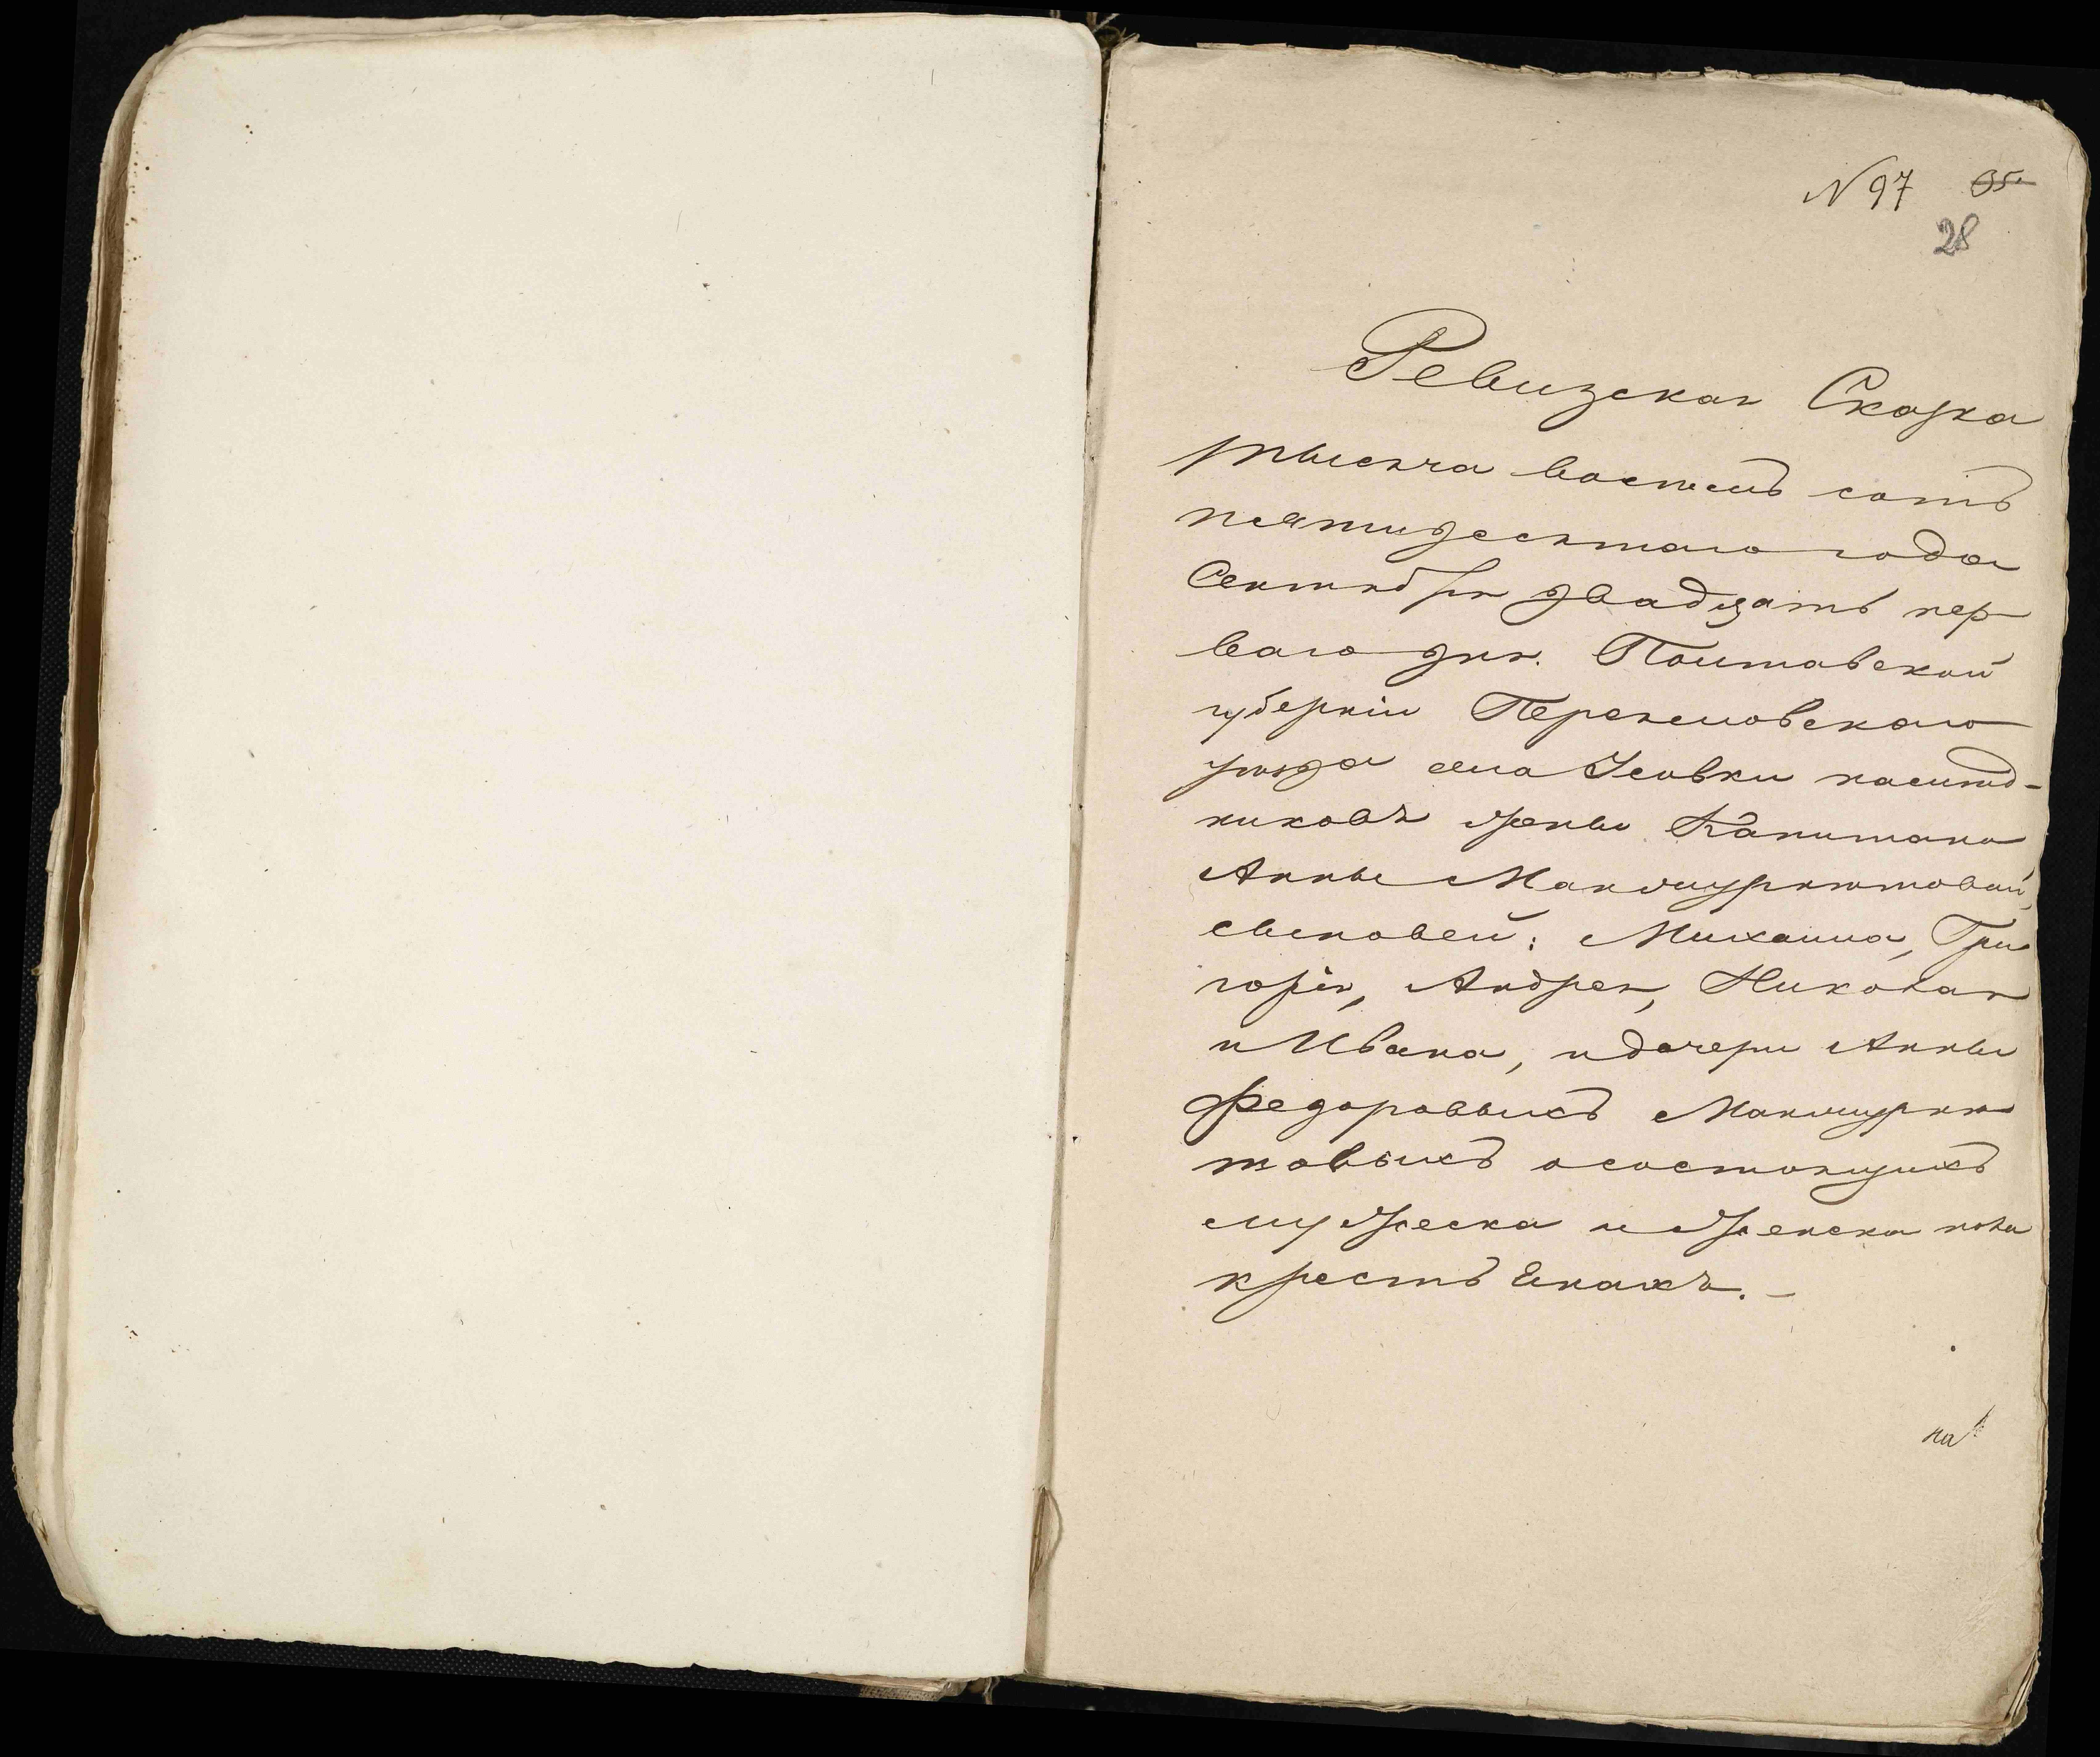 N 97 35.
28
Ревизская Сказка
тысяча восемь сотъ
пятидесятаго года
Сентября двадцать пер
ваго дня. Полтавской
губерніи Переяславскаго
уѣзда села Усовки наслѣд-
никовъ жены Капитана
Анны
сыновей: Михаила, Гри
горія, Андрея, Николая
и Ивана, и дочери Анны
Федоровыхъ
товыхъ осостоящихъ
мужеска и женска пола
крестьянахъ. –
на